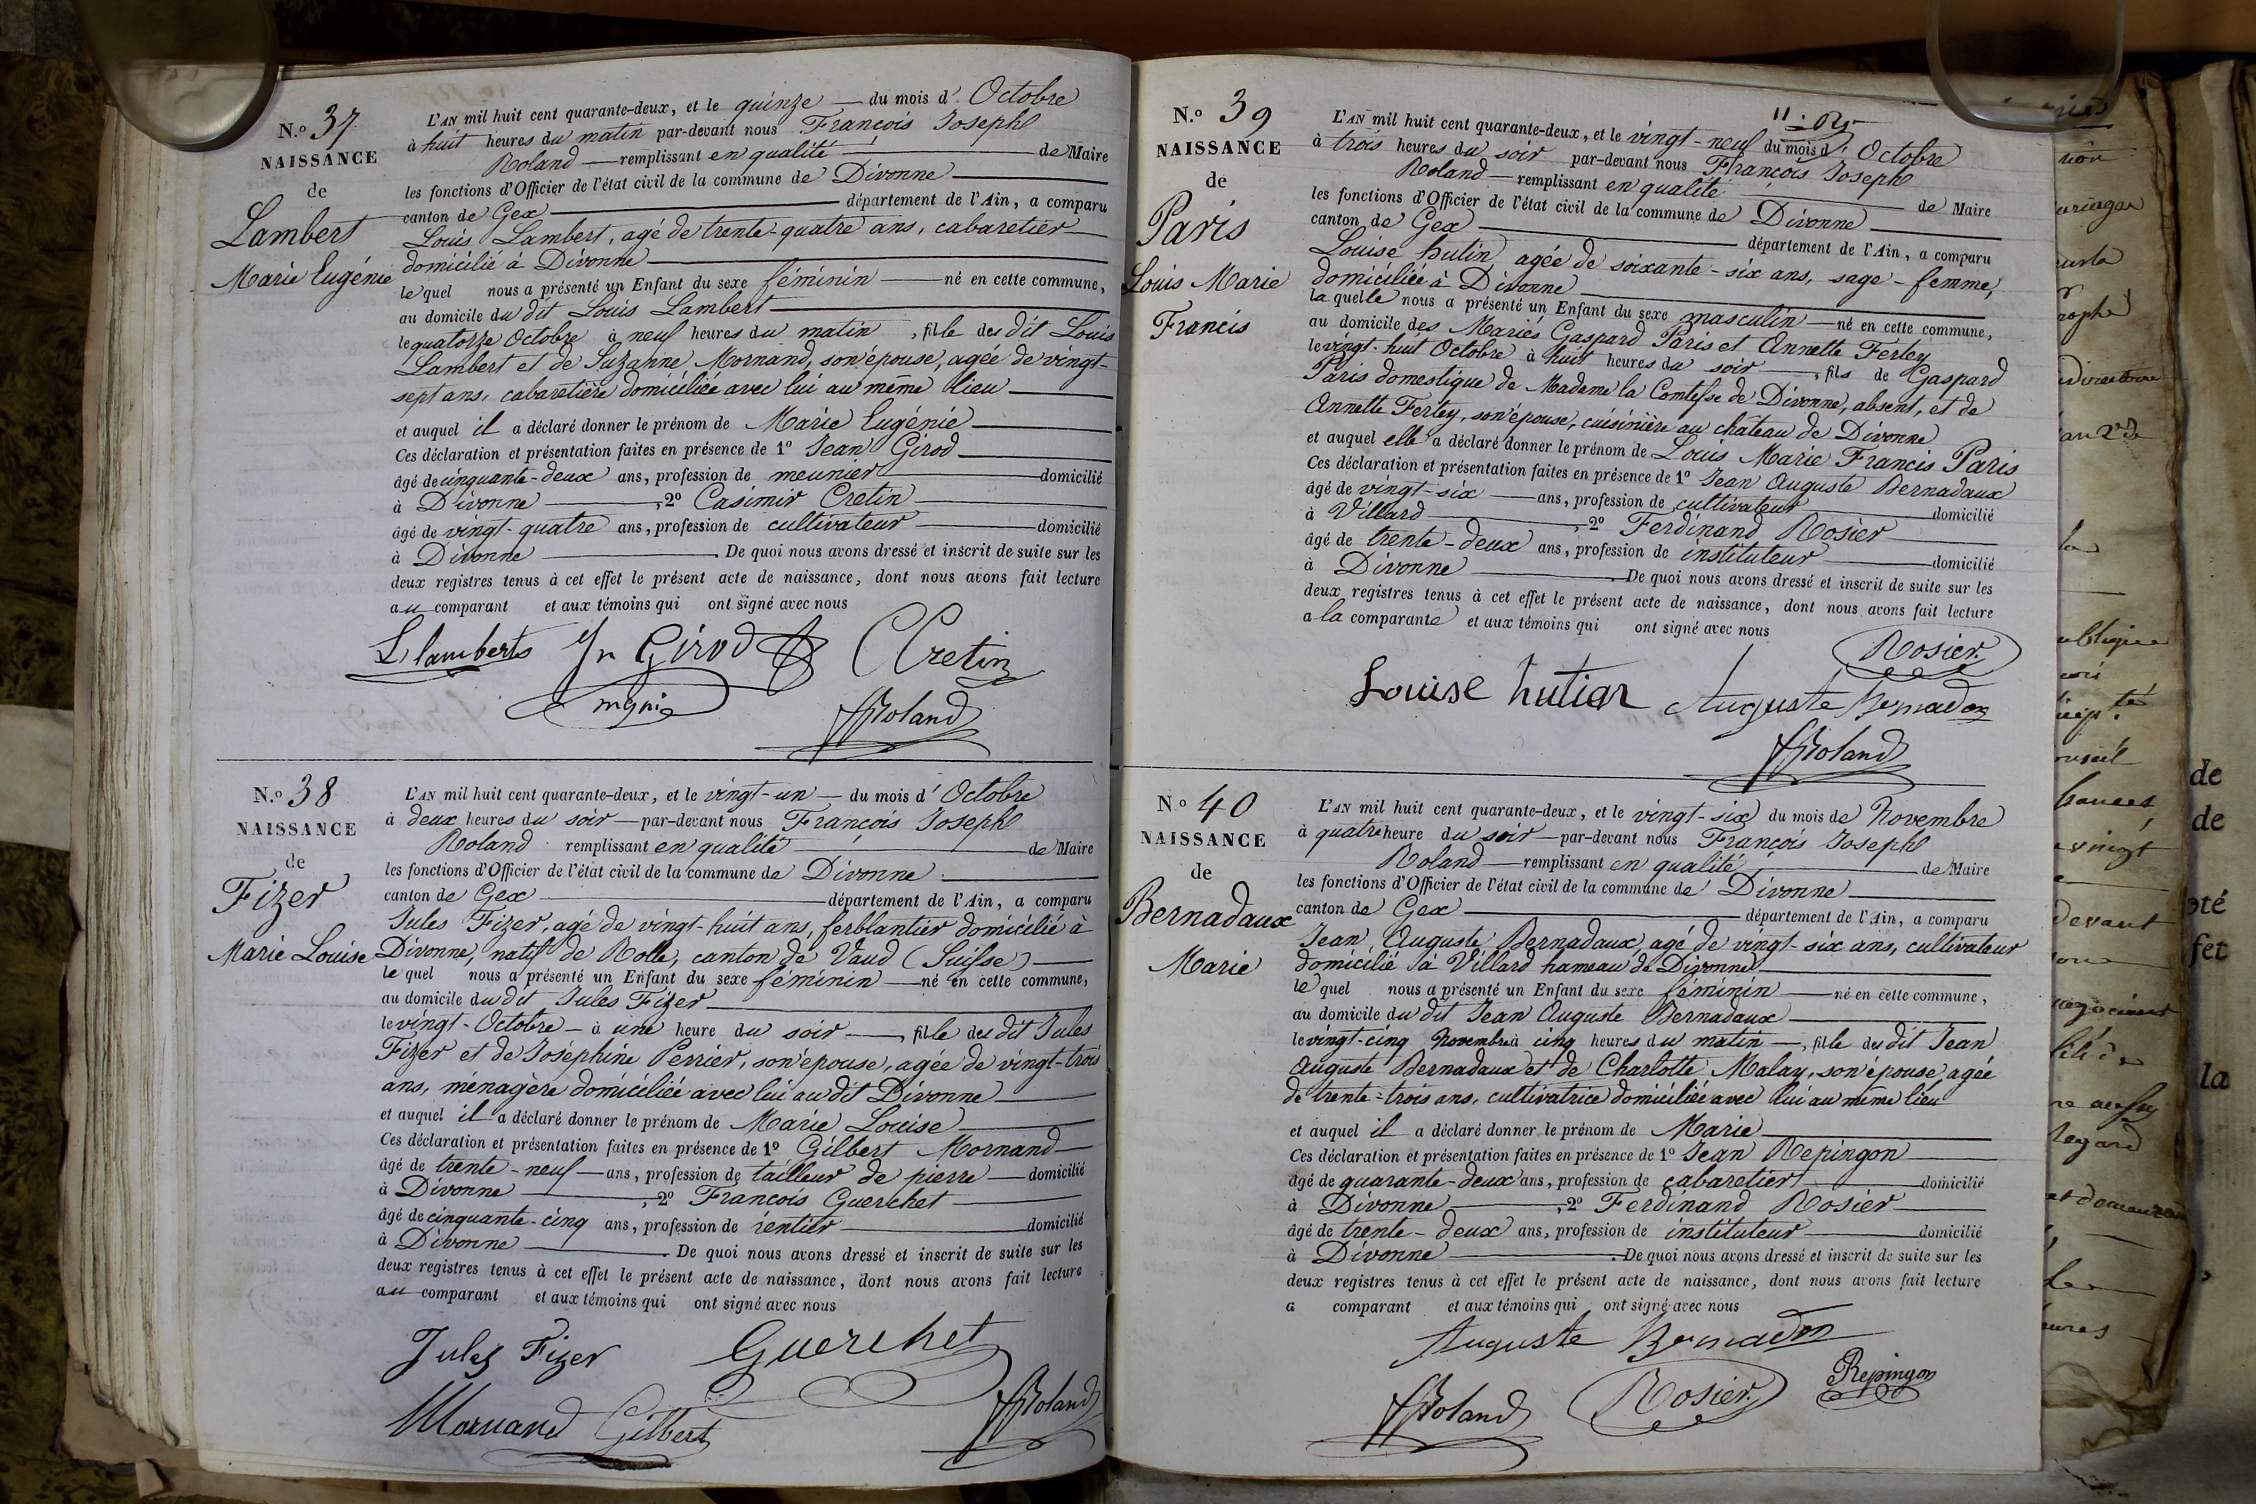 N.º 37
NAISSANCE
de
Lambert
Marie Eugénie
L'AN mil huit cent quarante-deux, et le quinze du mois d' Octobre
à huit heures du matin par-devant nous François Joseph
Roland remplissant en qualité de Maire
les fonctions d'Officier de l'état civil de la commune de Divonne
canton de Gex département de l'Ain, a comparu
Louis Lambert, agé de trente-quatre ans, cabaretier
domicilié à Divonne
lequel nous a présenté un Enfant du sexe féminin né en cette commune,
au domicile du dit Louis Lambert
le quatorze Octobre à neuf heures du matin, fille des dit Louis
Lambert et de Suzanne Mornand, son épouse, agée de vingt-
sept ans, cabaretière domiciliée avec lui au même lieu
et auquel il a déclaré donner le prénom de Marie Eugénie
Ces déclaration et présentation faites en présence de 1º Jean Girod
âgé de cinquante-deux ans, profession de meunier domicilié
à Divonne, 2º Casimir Cretin
âgé de vingt-quatre ans, profession de cultivateur domicilié
à Divonne. De quoi nous avons dressé et inscrit de suite sur les
deux registres tenus à cet effet le présent acte de naissance, dont nous avons fait lecture
au comparant et aux témoins qui ont signé avec nous
L lamberts Jn Girod CCretin
mgnie
FfRoland
N.º 38
NAISSANCE
de
Fizer
Marie Louise
L'AN mil huit cent quarante-deux, et le vingt-un du mois d' Octobre
à deux heures du soir par-devant nous François Joseph
Roland remplissant en qualité de Maire
les fonctions d'Officier de l'état civil de la commune de Divonne
canton de Gex département de l'Ain, a comparu
Jules Fizer, agé de vingt-huit ans, ferblantier domicilié à
Divonne, natif de Rolle, canton de Vaud (Suisse)
lequel nous a présenté un Enfant du sexe féminin né en cette commune,
au domicile du dit Jules Fizer
le vingt-Octobre à une heure du soir, fille des dit Jules
Fizer et de Joséphine Perrier, son épouse, agée de vingt-trois
ans, ménagère domiciliée avec lui au dit Divonne
et auquel il a déclaré donner le prénom de Marie Louise
Ces déclaration et présentation faites en présence de 1º Gilbert Mornand
âgé de trente-neuf ans, profession de tailleur de pierre domicilié
à Divonne, 2º François Guerchet
âgé de cinquante-cinq ans, profession de rentier domicilié
à Divonne. De quoi nous avons dressé et inscrit de suite sur les
deux registres tenus à cet effet le présent acte de naissance, dont nous avons fait lecture
au comparant et aux témoins qui ont signé avec nous
Jules Fizer Guerchet
Mornand Gilbert FfRoland
N.º 39
NAISSANCE
de
Paris
Louis Marie
Francis
L'AN mil huit cent quarante-deux, et le vingt-neuf du mois d' Octobre
à trois heures du soir par-devant nous François Joseph
Roland remplissant en qualité de Maire
les fonctions d'Officier de l'état civil de la commune de Divonne
canton de Gex département de l'Ain, a comparu
Louise hutin agée de soixante-six ans, sage-femme,
domiciliée à Divonne
laquelle nous a présenté un Enfant du sexe masculin né en cette commune,
au domicile des Mariés Gaspard Paris et Annette Ferley
le vingt-huit Octobre à huit heures du soir, fils de Gaspard
Paris domestique de Madame la Comtesse de Divonne, absent, et de
Annette Ferley, son épouse, cuisinière au château de Divonne
et auquel elle a déclaré donner le prénom de Louis Marie Francis Paris
Ces déclaration et présentation faites en présence de 1º Jean Auguste Bernadaux
âgé de vingt-six ans, profession de cultivateur domicilié
à Villard, 2º Ferdinand Rosier
âgé de trente-deux ans, profession de instituteur domicilié
à Divonne. De quoi nous avons dressé et inscrit de suite sur les
deux registres tenus à cet effet le présent acte de naissance, dont nous avons fait lecture
a la comparante et aux témoins qui ont signé avec nous
Rosier
Louise hutian Auguste Bernadon
FfRoland
Nº 40
NAISSANCE
de
Bernadaux
Marie
L'AN mil huit cent quarante-deux, et le vingt-six du mois de Novembre
à quatre heure du soir par-devant nous François Joseph
Roland remplissant en qualité de Maire
les fonctions d'Officier de l'état civil de la commune de Divonne
canton de Gex département de l'Ain, a comparu
Jean Auguste Bernadaux, agé de vingt-six ans, cultivateur
domicilié à Villard hameau de Divonne
lequel nous a présenté un Enfant du sexe féminin né en cette commune,
au domicile du dit Jean Auguste Bernadaux
le vingt-cinq Novembre à cinq heures du matin, fille des dit Jean
Auguste Bernadaux et de Charlotte Malay, son épouse agée
de trente-trois ans, cultivatrice domiciliée avec lui au même lieu
et auquel il a déclaré donner le prénom de Marie
Ces déclaration et présentation faites en présence de 1º Jean Repingon
âgé de quarante-deux ans, profession de cabaretier domicilié
à Divonne, 2º Ferdinand Rosier
âgé de trente-deux ans, profession de instituteur domicilié
à Divonne. De quoi nous avons dressé et inscrit de suite sur les
deux registres tenus à cet effet le présent acte de naissance, dont nous avons fait lecture
a comparant et aux témoins qui ont signé avec nous
Auguste Bernadon
FfRoland Rosier Repingon
de
de
la